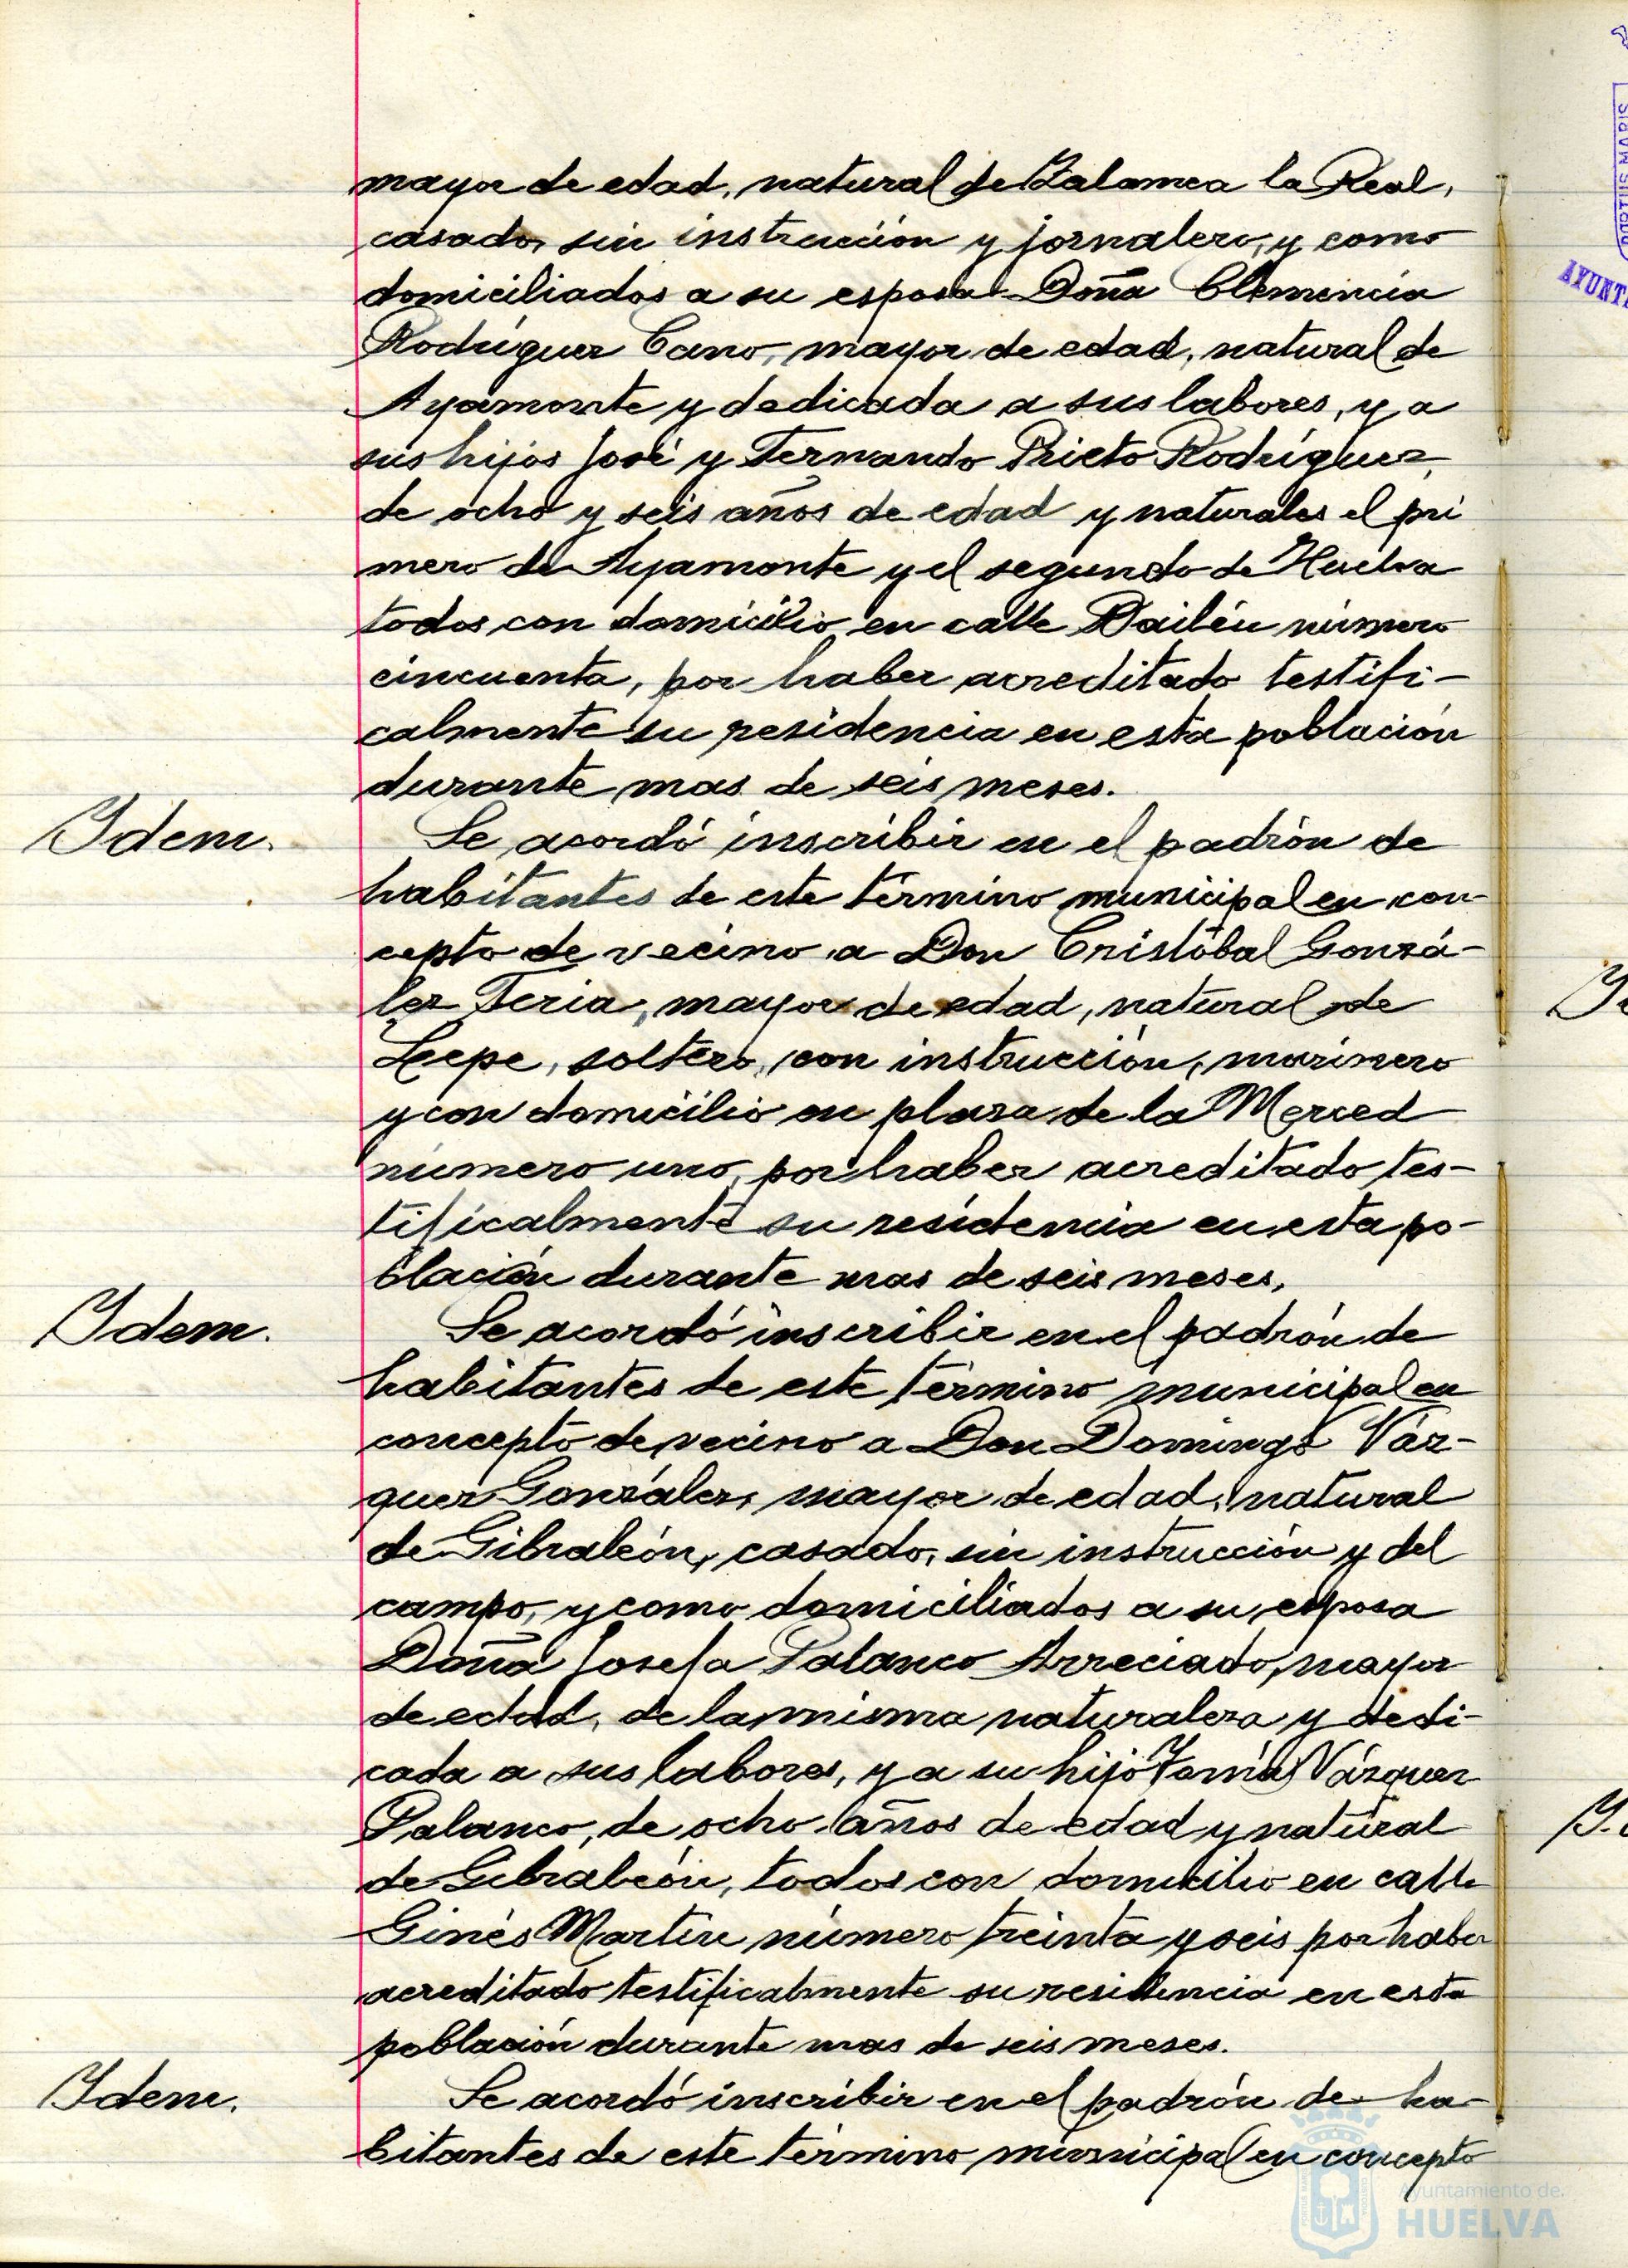 mayor de edad, natural de Zalamea la Real,
casado, sin instrucción y jornalero, y como
domiciliados a su esposa Doña Clemencia
Rodríguez Cano, mayor de edad, natural de
Ayamonte y dedicada a sus labores, y a
sus hijos José y Fernando Prieto Rodríguez,
de ocho y seis años de edad y naturales el pri
mero de Ayamonte y el segundo de Huelva
todos con domicilio en calle Bailén número
cincuenta, por haber acreditado testifi-
calmente su residencia en esta población
durante mas de seis meses.
Idem.
Se acordó inscribir en el padrón de
habitantes de este término municipal en con-
cepto de vecino a Don Cristóbal Gonzá-
lez Feria, mayor de edad, natural de
Lepe, soltero, con instrucción, marinero
y con domicilio en plaza de la Merced
número uno, por haber acreditado tes-
tificalmente su residencia en esta po-
blación durante mas de seis meses.
Idem.
Se acordó inscribir en el padrón de
habitantes de este término municipal en
concepto de vecino a Don Domingo Váz-
quez González, mayor de edad, natural
de Gibraleón, casado, sin instrucción y del
campo, y como domiciliados a su esposa
Doña Josefa Palanco Arreciado, mayor
de edad, de la misma naturaleza y dedi-
cada a sus labores, y a su hijo Tomás Vázquez
Palanco, de ocho años de edad y natural
de Gibraleón, todos con domicilio en calle
Ginés Martín número treinta y seis por haber
acreditado testificalmente su residencia en esta
población durante mas de seis meses.
Idem.
Se acordó inscribir en el padrón de ha-
bitantes de este término municipal en concepto
PORTUS MARIS
AYUNT
Ayuntamiento de
HUELVA